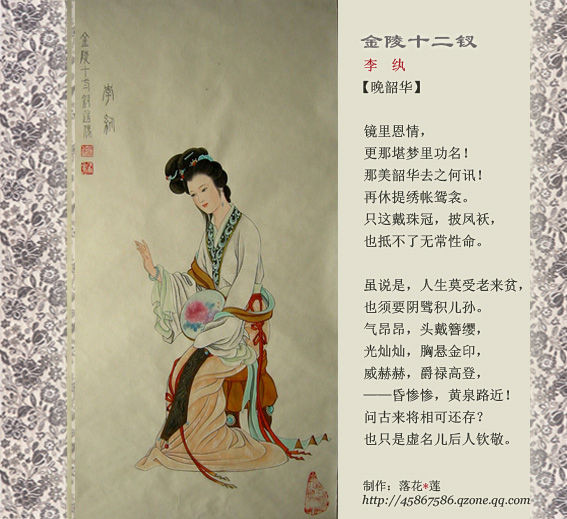 金陵十二釵
李紈
金陵十二钗
李 纨
【晚韶华】
镜里恩情，
更那堪梦里功名！
那美韶华去之何讯！
再休提绣帐鸳衾。
只这戴珠冠，披凤袄，
也抵不了无常性命。
虽说是，人生莫受老来贫，
也须要阴鹭积儿孙。
气昂昂，头戴簪缨，
光灿灿，胸悬金印，
威赫赫，爵禄高登，
——昏惨惨，黄泉路近！
问古来将相可还存？
也只是虚名儿后人钦敬。
制作：落花*莲
http://45867586.qzone.qq.com